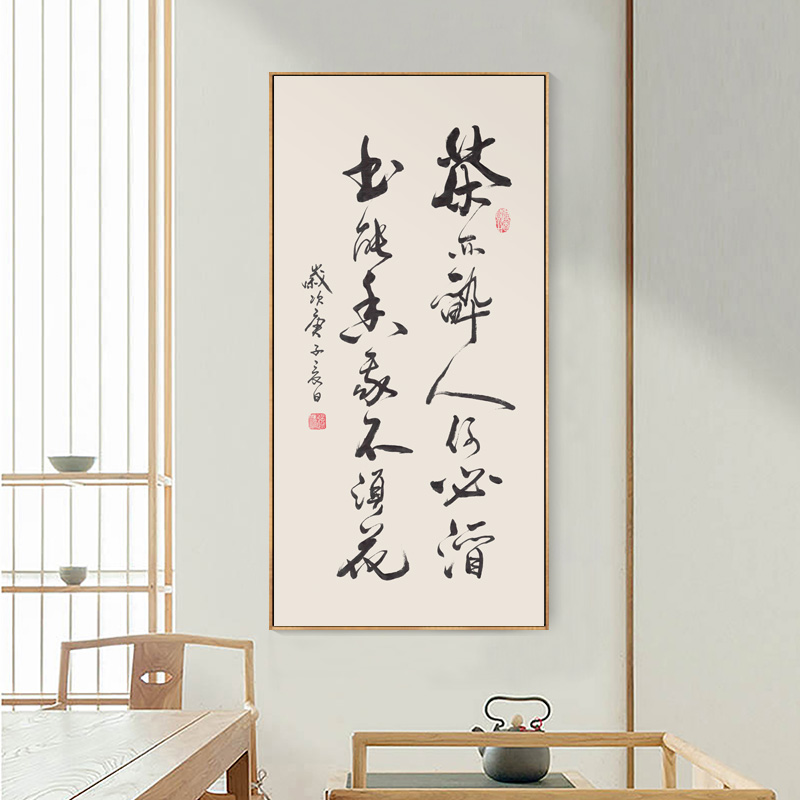 茶亦醉人何必酒
书能香我不须花
歲次庚子良日